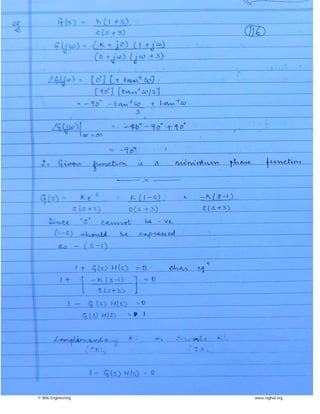 eg G(s) = K(1+s)
s(s+3)
116
G(jω) = (K+j0) (1+jω)
(0+jω) (jω+3)
∠G(jω) = [0°] [+ tan⁻¹ω]
[90°] [tan⁻¹ω/3]
= -90° - tan⁻¹ω/3 + tan⁻¹ω
∠G(jω)|ω=∞ = -90° - 90° + 90°
= -90°
Given function is a minimum phase function
G(s) = Ke⁻ˢ = K(1-s) = -K(s-1)
s(s+3) s(s+3) s(s+3)
Since 's' cannot be -ve
(1-s) should be expressed
as -(s-1)
1 + G(s) H(s) = 0 char eqⁿ
1 + [-K(s-1)
s(s+3)] = 0
1 - G(s) H(s) = 0
G(s) H(s) = 1
Complementary R. or Inverse R.
1 - G(s) H(s) = 0
Engineering
www.raghul.org